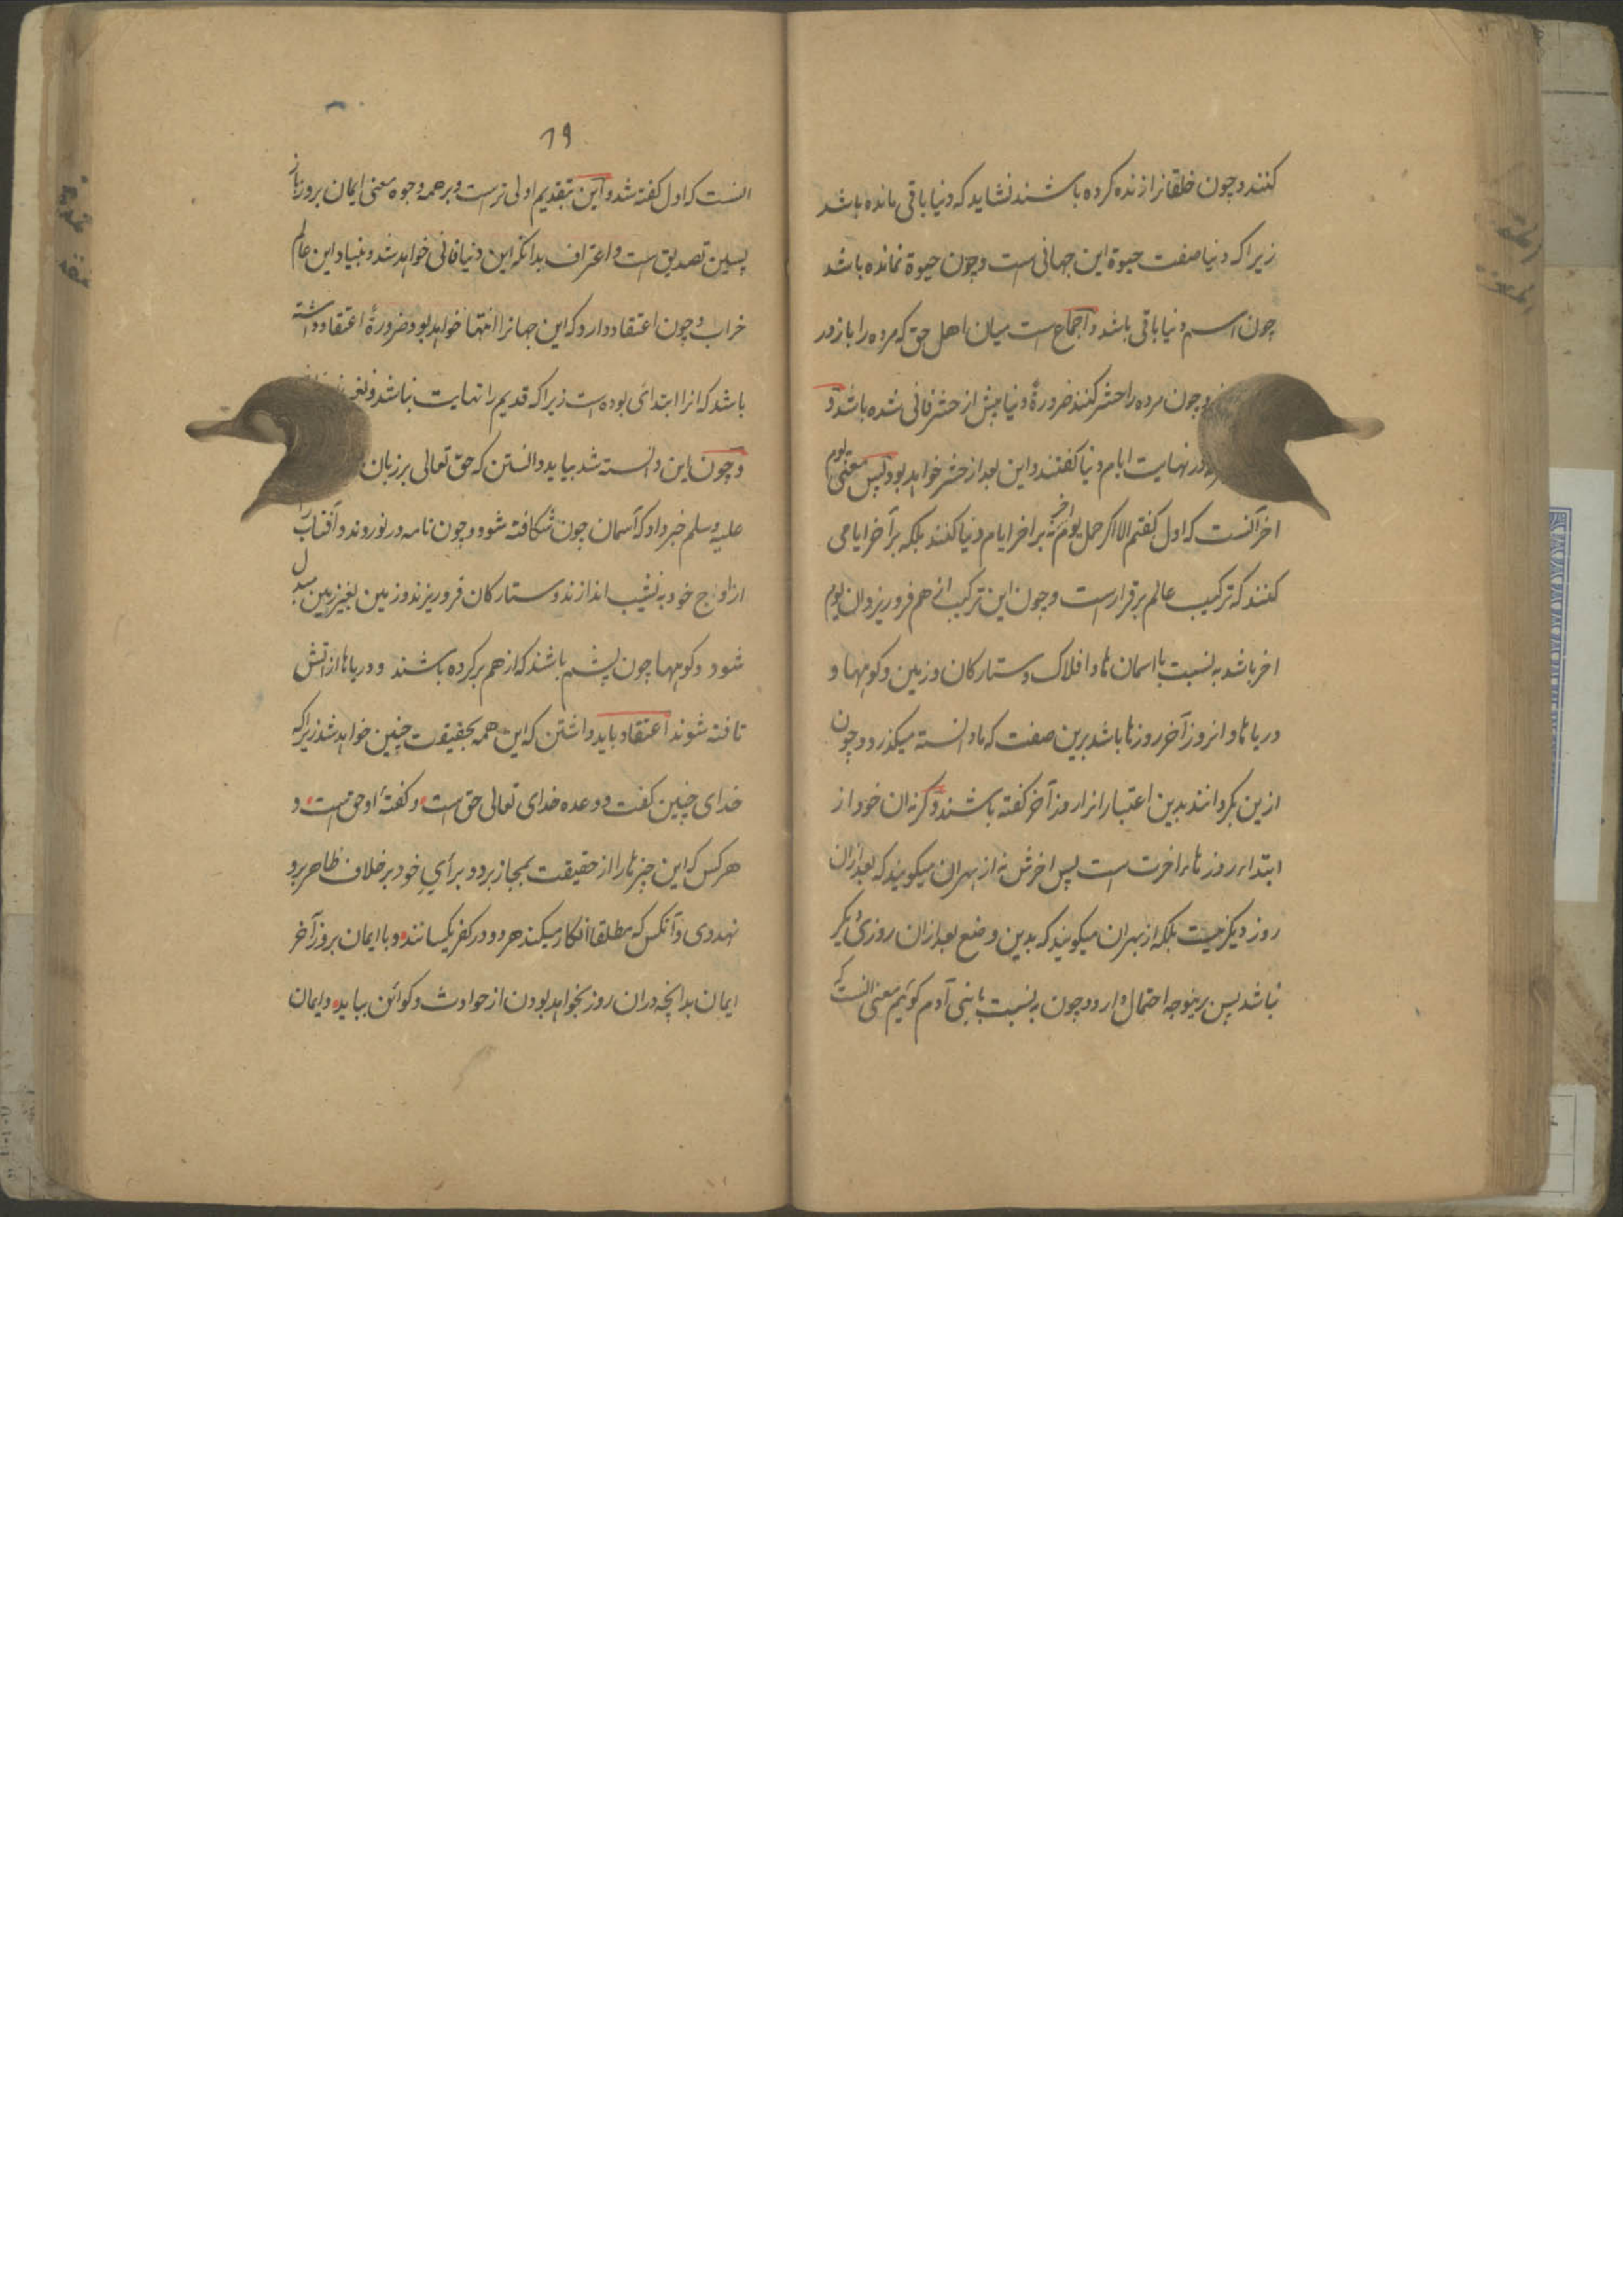 کنند و چون خلقانرا زنده کرده باشند نشاید که دنیا باقی مانده باشد
زیرا که دنیا صفت حیوة این جهانی است و چون حیوة نمانده باشد
چون اسم دنیا باقی باشد و اجماع است میان اهل حق که مرده را باز در
و چون مرده را حشر کنند ضرورةً دنیا پیش از حشر فانی شده باشد و
در نهایت ایام دنیا گفتند و این بعد از حشر خواهد بود پس معنی یوم
اخر آنست که اول گفتم الا اگر حمل یوم اخر نه بر اخر ایام دنیا کنند بلکه بر آخر ایامی
کنند که ترکیب عالم برقرارست و چون این ترکیب از هم فرو ریزد ان یوم
اخر باشد به نسبت با اسمان ها و افلاک و ستارکان و زمین و کوهها و
دریا ها و انروز آخر روزها باشد برین صفت که ما دانسته میکذرد و چون
ازین بگردانند بدین اعتبار انرا روز آخر گفته باشند و گرنه ان خود از
ابتداء روزهاء اخرت است پس اخرش نه از بهر ان میگویند که بعد از ان
روز دیگر نیست بلکه از بهر ان میگویند که بدین وضع بعد از ان روزی دیگر
نباشد پس برینوجه احتمال دارد و چون به نسبت با بنی آدم گوئیم معنی انست که
۱۹
انست که اول گفته شد و این بتقدیم اولی ترست و بر همه وجوه معنی ایمان بروز باز
پسین تصدیق است و اعتراف بدانکه این دنیا فانی خواهد شد و بنیاد این عالم
خراب و چون اعتقاد دارد که این جهانرا انتها خواهد بود ضرورةً اعتقاد داشته
باشد که انرا ابتدای بوده است زیرا که قدیم را نهایت نباشد و تغیر
و چون این دانسته شد بباید دانستن که حق تعالی بر زبان
علیه وسلم خبر داد که آسمان چون شکافته شود و چون نامه در نوردند و آفتاب را
از اوج خود به نشیب اندازند و ستارکان فرو ریزند و زمین بغیر زمین بدل
شود و کوهها چون پشم باشند که از هم بر کرده باشند و دریاها از تش
تافته شوند اعتقاد باید داشتن که این همه بحقیقت چنین خواهد شد زیرا که
خدای چنین گفت و وعده خدای تعالی حق است و گفتهٔ او حق است و
هر کس که این چیزها را از حقیقت بمجاز برد و برأی خود بر خلاف ظاهر برو
نهد وی و آنکس که مطلقا انکار میکند هر دو در کفر یکسانند و با ایمان بروز آخر
ایمان بدانچه در ان روز بخواهد بودن از حوادث و کوائن بباید و ایمان